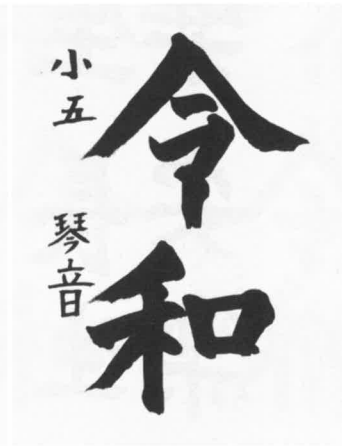 令和
小五 琴音